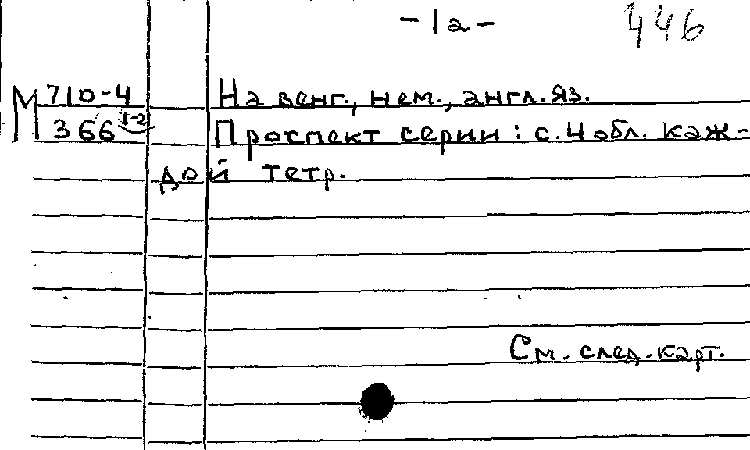 -1а-
446
М 710-4 На венг., нем., англ. яз.
366 1-2 Проспект серии: с. 4 обл. каж-
дой тетр.
См. след. карт.